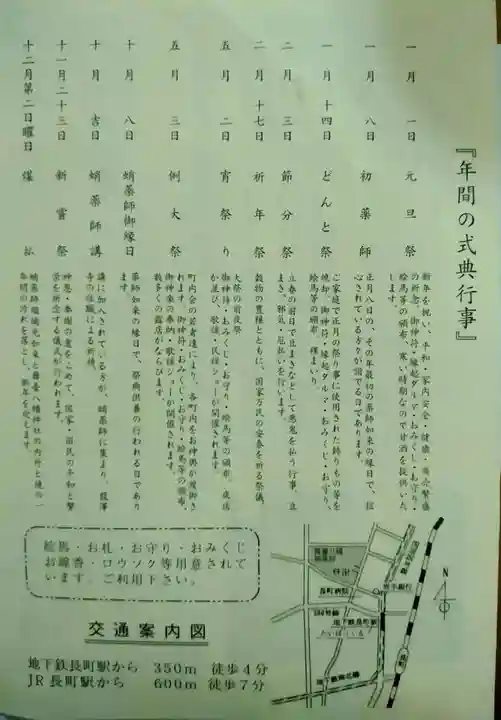 『年間の式典行事』
一月 一日 元旦祭
新年を祝い、平和・家内安全・健康・商売繁盛
の祈念、御神符・縁起ダルマ・おみくじ・お守り・
絵馬等の頒布、寒い時期なので甘酒を提供いた
します。
一月 八日 初薬師
正月八日の、その年最初の薬師如来の縁日で、信
心されている方々が詣でる日であります。
一月 十四日 どんと祭
ご家庭で正月の祭り事に使用された飾りもの等を
焼却、御神符・縁起ダルマ・おみくじ・お守り、
絵馬等の頒布、裸まいり。
二月 三日 節分祭
立春の前日で豆まきなどして悪鬼を払う行事、豆
まき、邪気・厄払いを行います。
二月 十七日 祈年祭
穀物の豊穣とともに、国家万民の安泰を祈る祭儀。
五月 二日 宵祭り
大祭の前夜祭
御神符・おみくじ・お守り・絵馬等の頒布、夜店
が並び、歌謡・民謡ショーが開催されます。
五月 三日 例大祭
町内会の若者達により、各町内をお神輿が渡御さ
れます。御神符・おみくじ・お守り・絵馬等の頒布、
御神楽の奉納、歌謡ショーが開催されます。
数多くの露店がならびます。
十月 八日 蛸薬師御縁日
薬師如来の縁日で、祭典供養の行われる日であり
ます。
十月 吉日 蛸薬師講
講に加入されている方が、蛸薬師に集まり、龍澤
寺の住職による祈祷。
十一月二十三日 新嘗祭
神恩・奉謝の意をこめて、国家・国民の平和と繁
栄を祈念する儀式が行われます。
十二月第二日曜日 煤払
蛸薬師瑠璃光如来と舞台八幡神社の内外と境の一
年間の汚れを落とし、新年を迎えます。
絵馬・お札・お守り・おみくじ
お線香・ロウソク等用意されて
います。ご利用下さい。
交通案内図
地下鉄長町駅から 350m 徒歩4分
JR長町駅から 600m 徒歩7分
N
長町病院
地下鉄長町駅
たいはっくる
長町